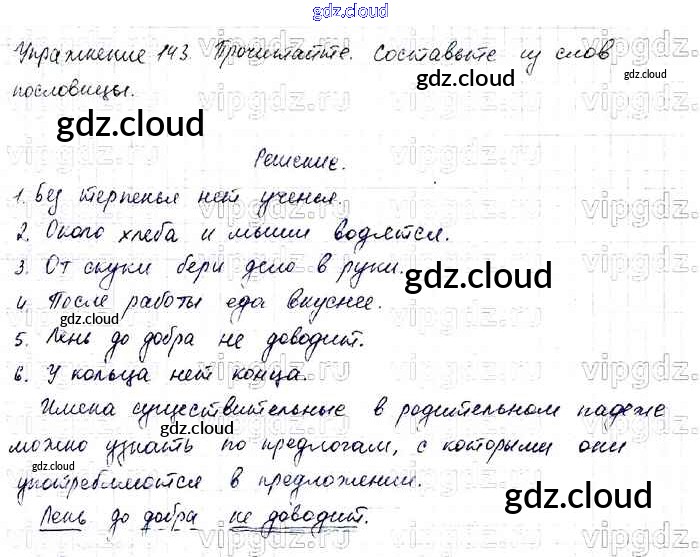 gdz.cloud
Упражнение 143. Прочитайте. Составьте из слов
пословицы.
Решение.
1. Без терпенья нет ученья.
2. Около хлеба и мыши водятся.
3. От скуки бери дело в руки.
4. После работы еда вкуснее.
5. Лень до добра не доводит.
6. У кольца нет конца.
Имена существительные в родительном падеже
можно узнать по предлогам, с которыми они
употребляются в предложении.
Лень до добра не доводит.